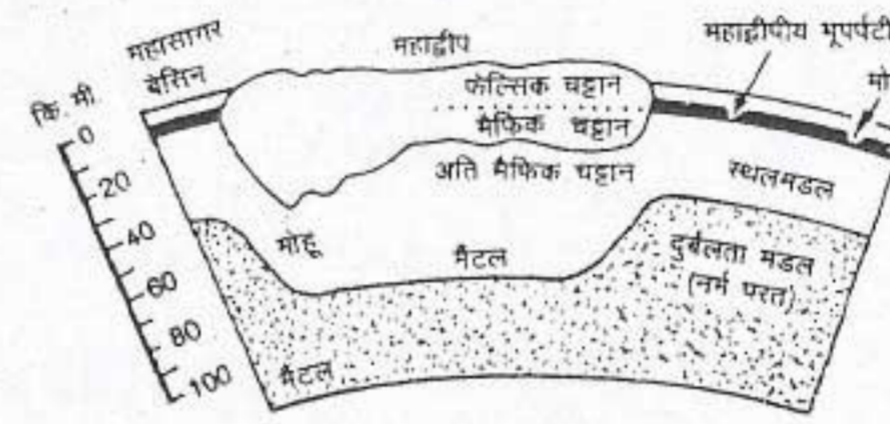 महासागर
बेसिन
महाद्वीप
महाद्वीपीय भूपर्पटी
मो
कि. मी.
0
20
40
60
80
100
फेल्सिक चट्टान
मैफिक चट्टान
अति मैफिक चट्टान
स्थलमडल
मोहू
मैटल
दुर्बलता मडल
(नर्म परत)
मैटल